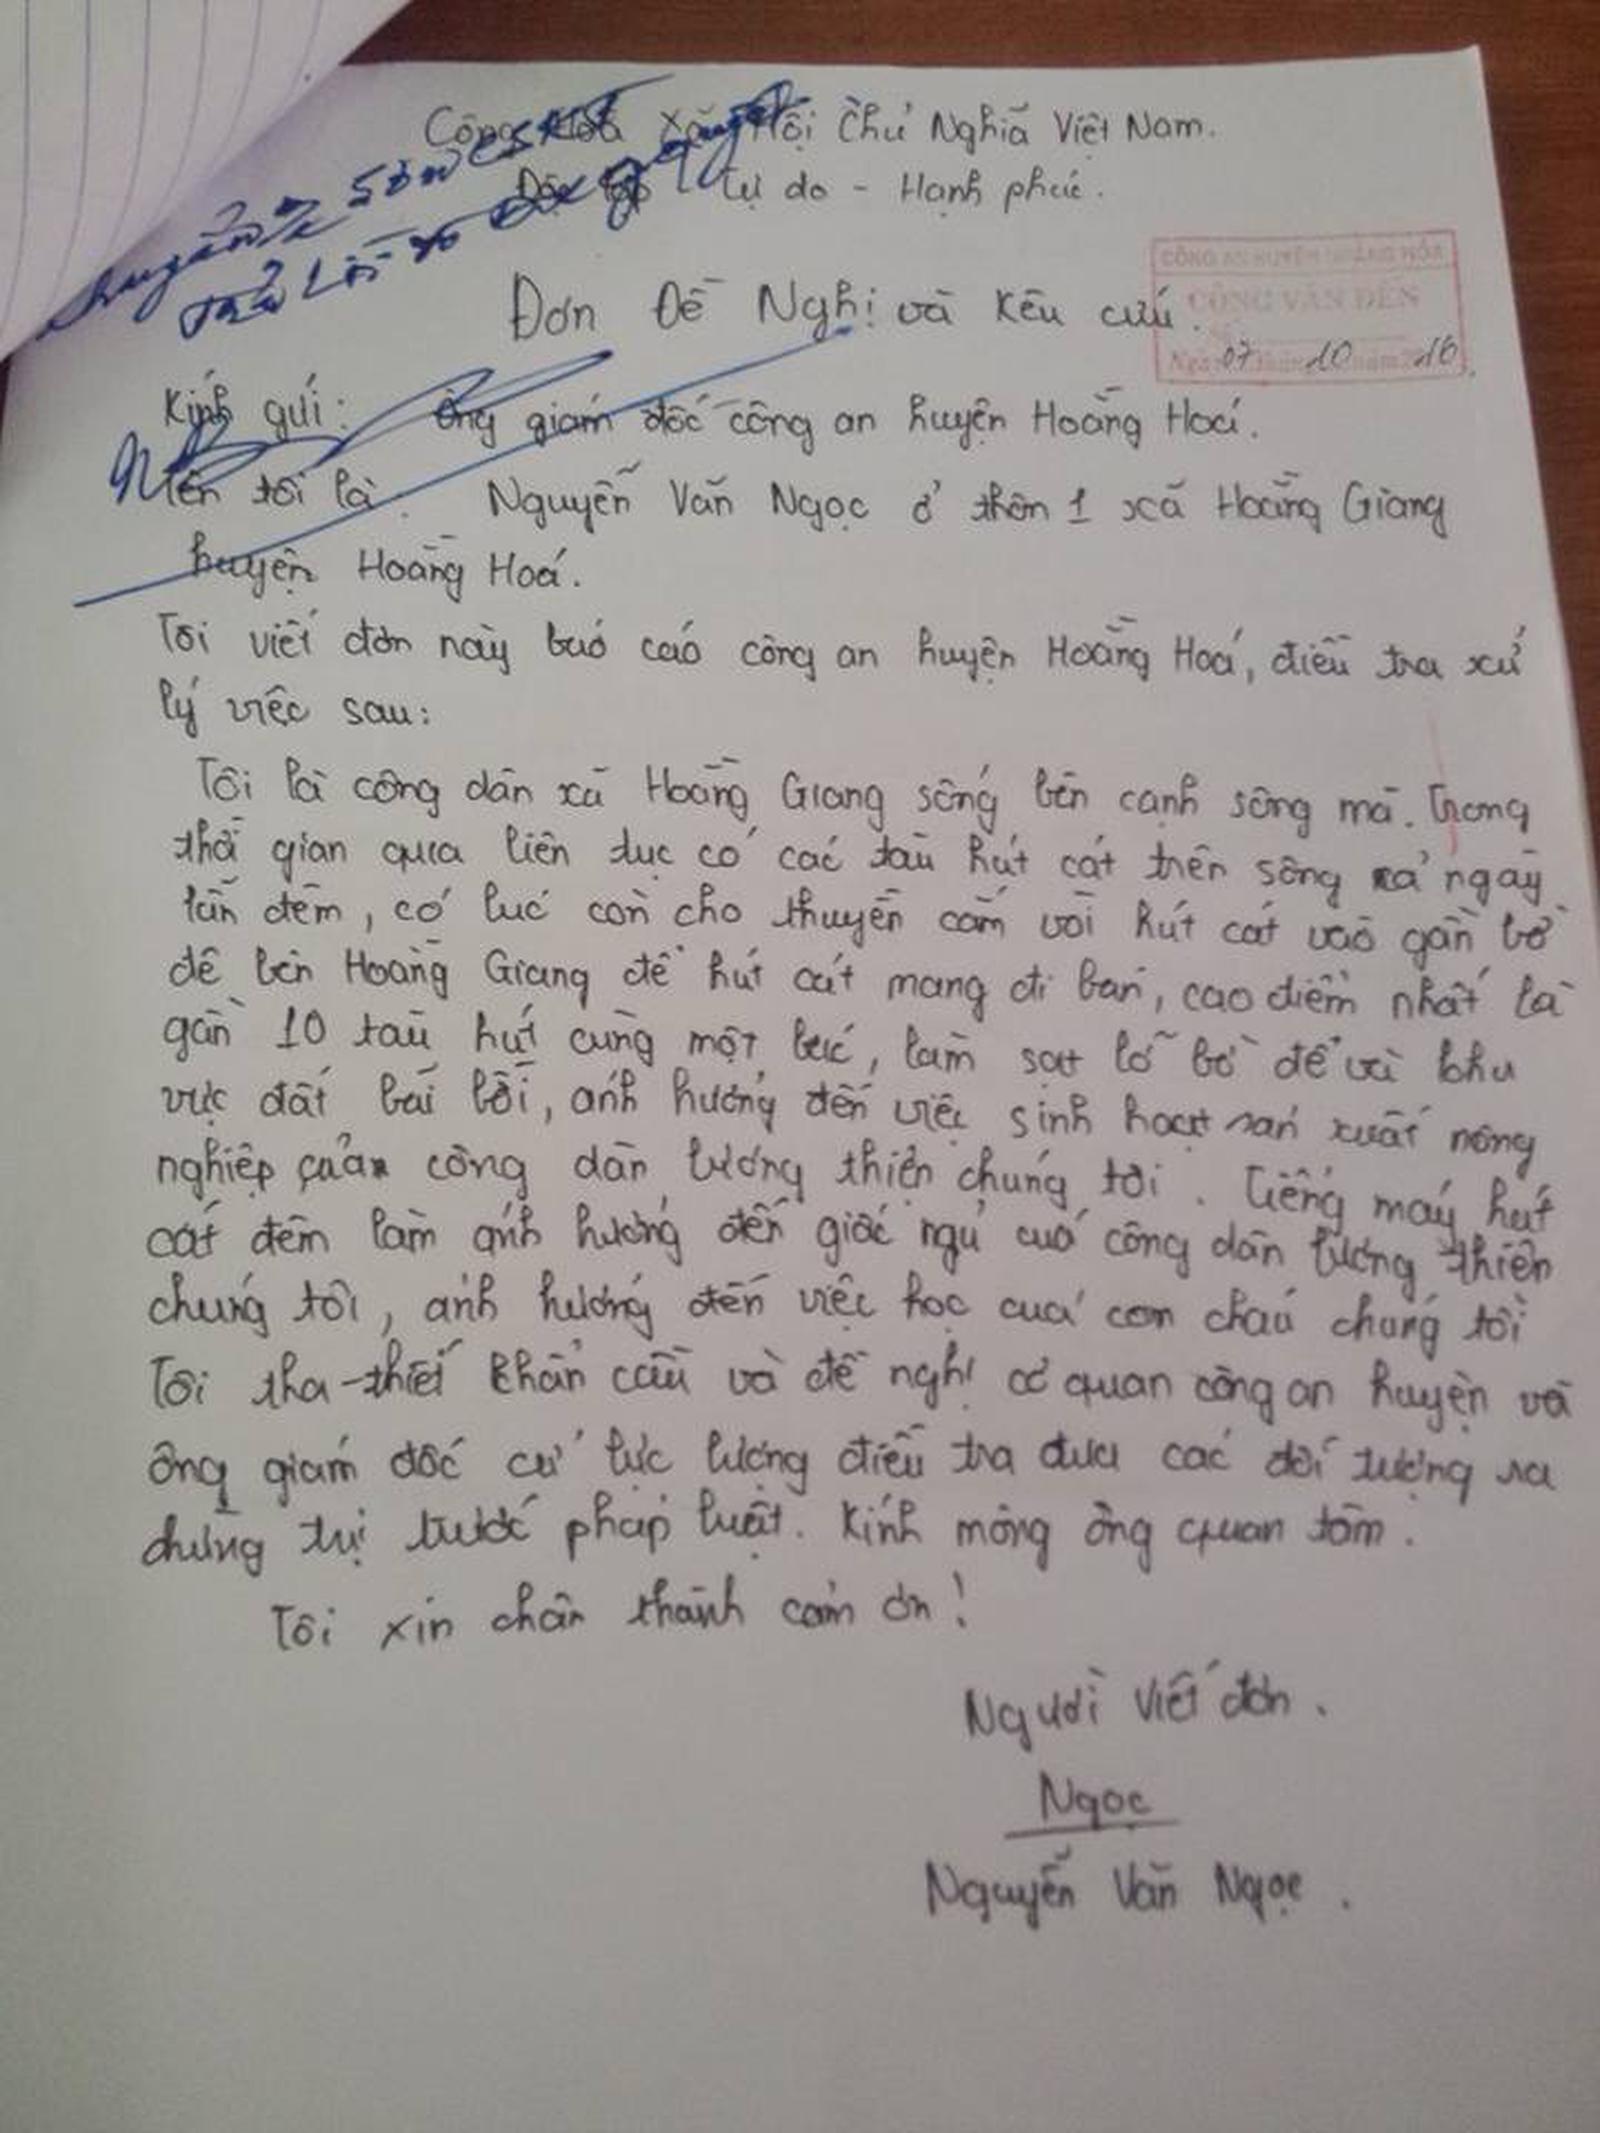 Cộng Hoà Xã Hội Chủ Nghĩa Việt Nam.
Độc lập - Tự do - Hạnh phúc.
CÔNG AN HUYỆN HOẰNG HÓA
CÔNG VĂN ĐẾN
Ngày 07 tháng 10 năm 2016
Đơn Đề Nghị và Kêu cứu.
Kính gửi: Ông giám đốc công an huyện Hoằng Hoá.
Tên tôi là: Nguyễn Văn Ngọc ở thôn 1 xã Hoằng Giang
huyện Hoằng Hoá.
Tôi viết đơn này báo cáo công an huyện Hoằng Hoá, điều tra xử
lý việc sau:
Tôi là công dân xã Hoằng Giang sống bên cạnh sông mã. Trong
thời gian qua liên tục có các tàu hút cát trên sông cả ngày
lẫn đêm, có lúc còn cho thuyền cắm vòi hút cát vào gần bờ
đê bên Hoằng Giang để hút cát mang đi bán, cao điểm nhất là
gần 10 tàu hút cùng một lúc, làm sạt lở bờ đê và khu
vực đất bãi bồi, ảnh hưởng đến việc sinh hoạt sản xuất nông
nghiệp của công dân lương thiện chúng tôi. Tiếng máy hút
cát đêm làm ảnh hưởng đến giấc ngủ của công dân lương thiện
chúng tôi, ảnh hưởng đến việc học của con cháu chúng tôi
Tôi tha-thiết khẩn cầu và đề nghị cơ quan công an huyện và
ông giám đốc cử lực lượng điều tra đưa các đối tượng ra
chừng trị trước pháp luật. Kính mong ông quan tâm.
Tôi xin chân thành cảm ơn!
Người viết đơn.
Ngọc
Nguyễn Văn Ngọc.